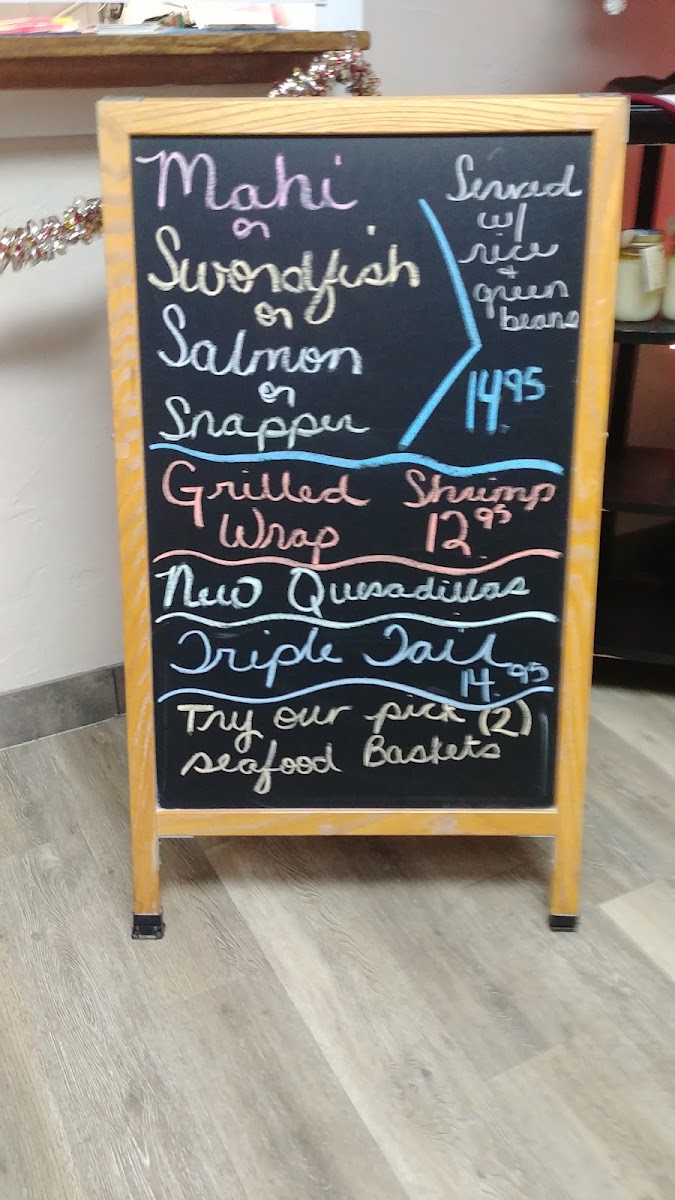 Mahi
or
Swordfish
or
Salmon
or
Snapper
Served
w/
rice
+
green
beans
14.95
Grilled Shrimp
Wrap 12.95
New Quesadillas
Triple Tail
14.95
Try our pick (2)
seafood Baskets